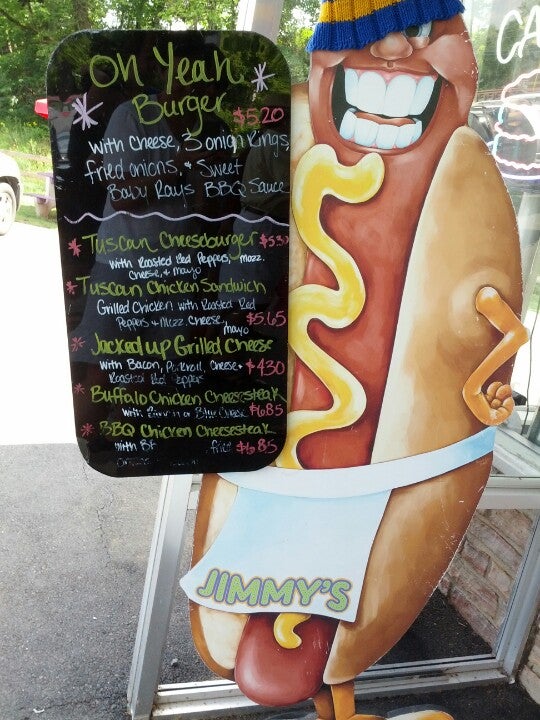 Oh Yeah
Burger $5.20
with cheese, 3 onion rings,
fried onions, & Sweet
Baby Rays BBQ Sauce
* Tuscan Cheeseburger $5.30
with Roasted Red Peppers, Mozz.
cheese, & mayo
* Tuscan Chicken Sandwich
Grilled Chicken with Roasted Red
Peppers & Mozz. Cheese, $5.65
mayo
* Jacked up Grilled Cheese
with Bacon, Cheese & $4.30
Roasted Red Peppers
* Buffalo Chicken Cheesesteak
with Ranch or Blue Cheese $6.85
* BBQ Chicken Cheesesteak
with $6.85
JIMMY'S
CA